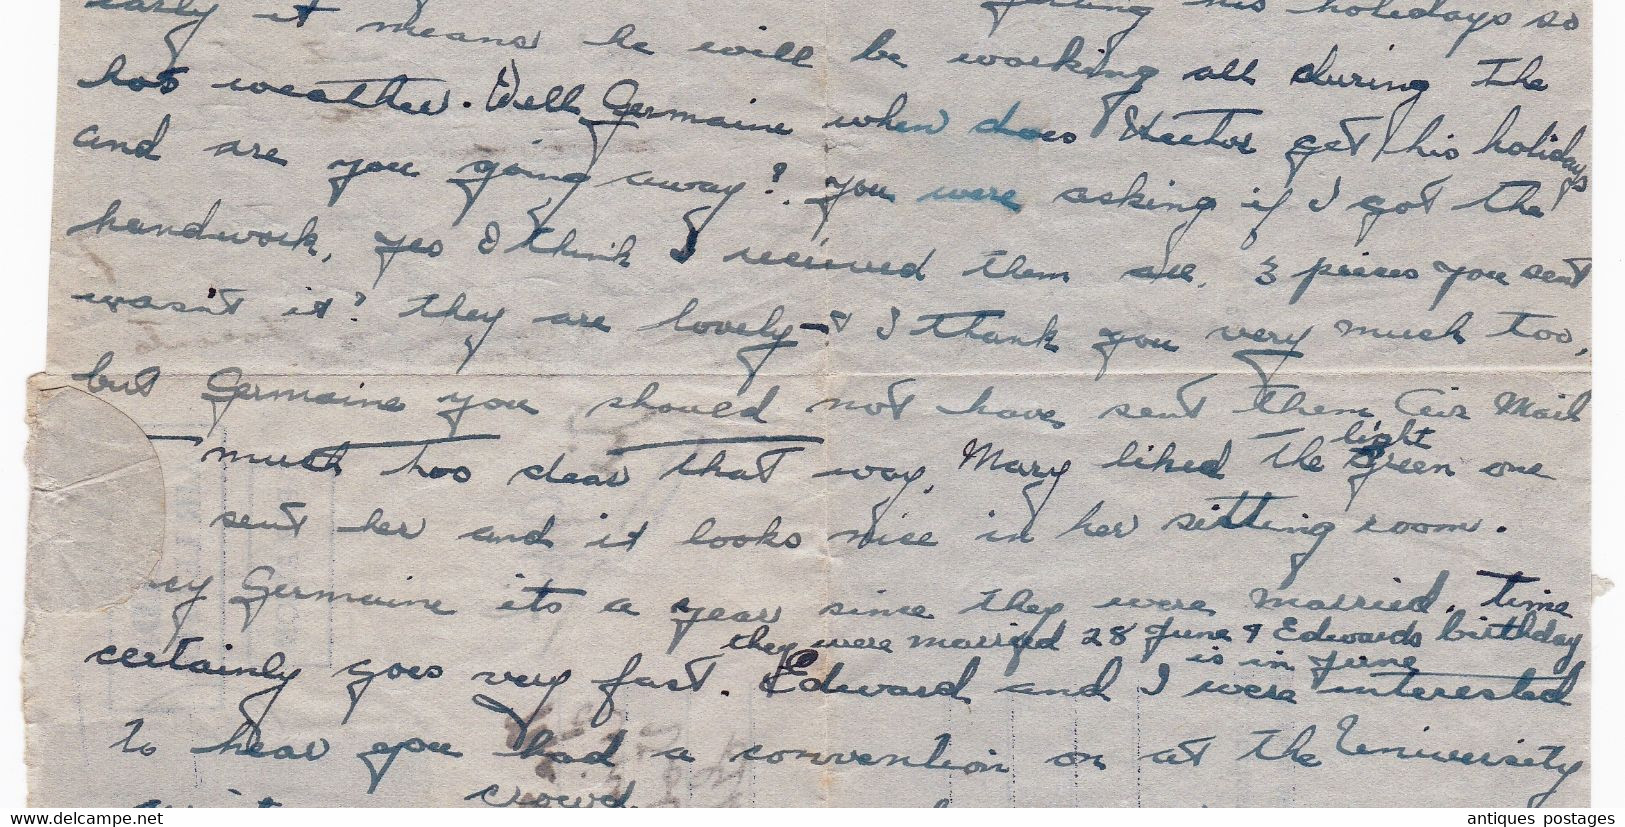 early it means he will be working all during the
getting his holidays so
hot weather. Well Germaine when does Hector get his holidays
and are you going away? You were asking if I got the
handwork, yes I think I received them all, 3 pieces you sent
wasn't it? they are lovely & I thank you very much too,
but Germaine you should not have sent them Air Mail
much too dear that way, Mary liked the light green one
sent her and it looks nice in her sitting room.
Germaine its a year since they were married. time
certainly goes very fast. they were married 28 June & Edwards birthday is in June
Edward and I were interested
to hear you had a convention on at the University
crowd
www.delcampe.net
antiques postages